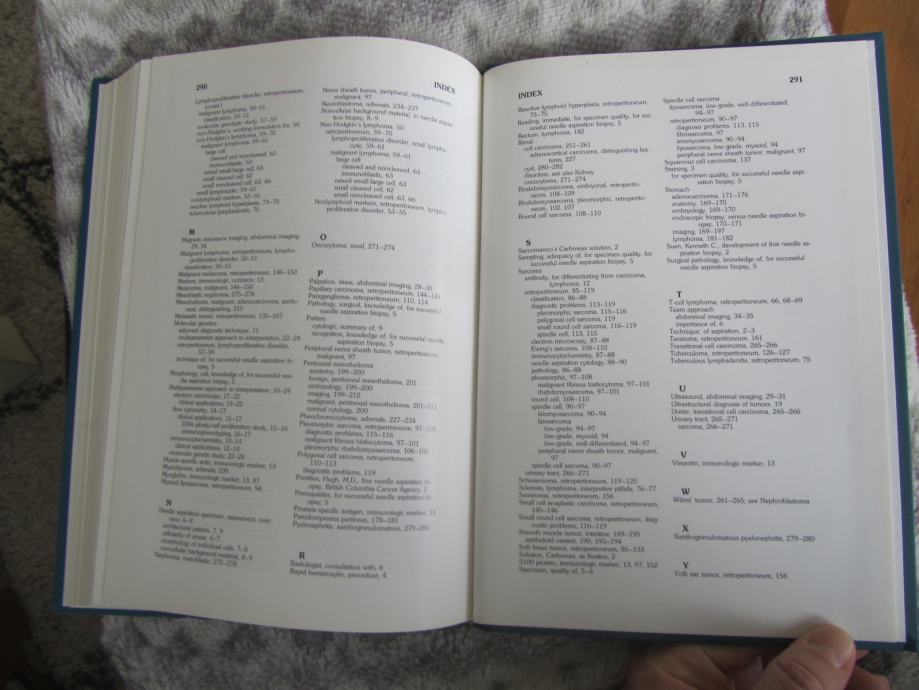 290
INDEX
Lymphoproliferative disorder, retroperitoneum
(contd.)
malignant lymphoma, 50–51
classification, 50–51
molecular genetic study, 57–59
non-Hodgkin's, working formulation for, 50
non-Hodgkin's lymphoma, 59–70
malignant lymphoma, 59–61
large cell
cleaved and noncleaved, 63
immunoblastic, 63
mixed small large cell, 63
small cleaved cell, 62
small noncleaved cell, 63, 66
small lymphocytic, 59–61
nonlymphoid markers, 53–55
reactive lymphoid hyperplasia, 73–75
tuberculous lymphadenitis, 75
M
Magnetic resonance imaging, abdominal imaging,
29, 34
Malignant lymphoma, retroperitoneum, lympho-
proliferative disorder, 50–51
classification, 50–51
Malignant melanoma, retroperitoneum, 146–150
Markers, immunologic, common, 13
Melanoma, malignant, 146–150
Mesoblastic nephroma, 275–278
Mesothelioma, malignant, adenocarcinoma, perito-
neal, distinguishing, 210
Metastatic tumor, retroperitoneum, 135–167
Molecular genetics
adjuvant diagnostic technique, 11
multiparameter approach to interpretation, 22–24
retroperitoneum, lymphoproliferative disorder,
57–59
technique of, for successful needle aspiration bi-
opsy, 5
Morphology, cell, knowledge of, for successful nee-
dle aspiration biopsy, 5
Multiparameter approach to interpretation, 10–24
electron microscopy, 17–22
clinical applications, 19–22
flow cytometry, 14–17
clinical applications, 15–17
DNA ploidy/cell proliferation study, 15–16
immunophenotyping, 16–17
immunocytochemistry, 10–14
clinical applications, 12–14
molecular genetic study, 22–24
Muscle-specific actin, immunologic marker, 13
Myelolipoma, adrenals, 239
Myoglobin, immunologic marker, 13, 87
Myxoid liposarcoma, retroperitoneum, 94
N
Needle aspiration specimen, assessment, over-
view, 6–9
architectural pattern, 7, 9
cellularity of smear, 6–7
morphology of individual cells, 7–8
noncellular background material, 8–9
Nephroma, mesoblastic, 275–278
Nerve sheath tumor, peripheral, retroperitoneum,
malignant, 97
Neuroblastoma, adrenals, 234–237
Noncellular background material, in needle aspira-
tion biopsy, 8–9
Non-Hodgkin's lymphoma, 50
retroperitoneum, 59–70
lymphoproliferative disorder, small lympho-
cytic, 59–61
malignant lymphoma, 59–61
large cell
cleaved and noncleaved, 63
immunoblastic, 63
mixed small large cell, 63
small cleaved cell, 62
small noncleaved cell, 63, 66
Nonlymphoid markers, retroperitoneum, lympho-
proliferative disorder, 53–55
O
Oncocytoma, renal, 271–274
P
Palpation, mass, abdominal imaging, 28–31
Papillary carcinoma, retroperitoneum, 144–145
Paraganglioma, retroperitoneum, 110, 114
Pathology, surgical, knowledge of, for successful
needle aspiration biopsy, 5
Pattern
cytologic, summary of, 9
recognition, knowledge of, for successful needle
aspiration biopsy, 5
Peripheral nerve sheath tumor, retroperitoneum,
malignant, 97
Peritoneal mesothelioma
anatomy, 199–200
benign, peritoneal mesothelioma, 201
embryology, 199–200
imaging, 199–212
malignant, peritoneal mesothelioma, 201–212
normal cytology, 200
Pheochromocytoma, adrenals, 227–234
Pleomorphic sarcoma, retroperitoneum, 97–108
diagnostic problems, 115–116
malignant fibrous histiocytoma, 97–101
pleomorphic rhabdomyosarcoma, 106–108
Polygonal cell sarcoma, retroperitoneum,
110–113
diagnostic problems, 119
Pontifex, Hugh, M.D., fine needle aspiration bi-
opsy, British Columbia Cancer Agency, 2
Prerequisites, for successful needle aspiration bi-
opsy, 5
Prostate-specific antigen, immunologic marker, 13
Pseudomyxoma peritonei, 178–181
Pyelonephritis, xanthogranulomatous, 279–280
R
Radiologist, consultation with, 6
Rapid hematoxylin, procedure, 4
INDEX
291
Reactive lymphoid hyperplasia, retroperitoneum,
73–75
Reading, immediate, for specimen quality, for suc-
cessful needle aspiration biopsy, 5
Rectum, lymphoma, 182
Renal
cell carcinoma, 251–261
adrenocortical carcinoma, distinguishing fea-
tures, 227
cyst, 280–282
disorders, see also Kidney
oncocytoma, 271–274
Rhabdomyosarcoma, embryonal, retroperito-
neum, 108–109
Rhabdomyosarcoma, pleomorphic, retroperito-
neum, 102, 107
Round cell sarcoma, 108–110
S
Saccomanno's Carbowax solution, 2
Sampling, adequacy of, for specimen quality, for
successful needle aspiration biopsy, 5
Sarcoma
antibody, for differentiating from carcinoma,
lymphoma, 12
retroperitoneum, 85–119
classification, 86–88
diagnostic problems, 113–119
pleomorphic sarcoma, 115–116
polygonal cell sarcoma, 119
small round cell sarcoma, 116–119
spindle cell, 113, 115
electron microscopy, 87–88
Ewing's sarcoma, 108–110
immunocytochemistry, 87–88
needle aspiration cytology, 88–90
pathology, 86–88
pleomorphic, 97–108
malignant fibrous histiocytoma, 97–101
rhabdomyosarcoma, 97–101
round cell, 108–110
spindle cell, 90–97
leiomyosarcoma, 90–94
liposarcoma
low-grade, 94–97
low-grade, myxoid, 94
low-grade, well-differentiated, 94–97
peripheral nerve sheath tumor, malignant,
97
spindle cell sarcoma, 90–97
urinary tract, 266–271
Schwannoma, retroperitoneum, 119–120
Sclerosis, lymphoma, interpretive pitfalls, 76–77
Seminoma, retroperitoneum, 156
Small cell anaplastic carcinoma, retroperitoneum,
145–146
Small round cell sarcoma, retroperitoneum, diag-
nostic problems, 116–119
Smooth muscle tumor, intestine, 189–195
epithelioid variant, 190, 193–194
Soft tissue tumor, retroperitoneum, 85–133
Solution, Carbowax, as fixative, 2
S100 protein, immunologic marker, 13, 97, 152
Specimen, quality of, 5–6
Spindle cell sarcoma
liposarcoma, low-grade, well-differentiated,
94–97
retroperitoneum, 90–97
diagnosis problems, 113, 115
fibrosarcoma, 97
leiomyosarcoma, 90–94
liposarcoma, low-grade, myxoid, 94
peripheral nerve sheath tumor, malignant, 97
Squamous cell carcinoma, 137
Staining, 3
for specimen quality, for successful needle aspi-
ration biopsy, 5
Stomach
adenocarcinoma, 171–176
anatomy, 169–170
embryology, 169–170
endoscopic biopsy, versus needle aspiration bi-
opsy, 170–171
imaging, 169–197
lymphoma, 181–182
Suen, Kenneth C., development of fine needle as-
piration biopsy, 2
Surgical pathology, knowledge of, for successful
needle aspiration biopsy, 5
T
T-cell lymphoma, retroperitoneum, 66, 68–69
Team approach
abdominal imaging, 34–35
importance of, 6
Technique, of aspiration, 2–3
Teratoma, retroperitoneum, 161
Transitional cell carcinoma, 265–266
Tuberculoma, retroperitoneum, 126–127
Tuberculous lymphadenitis, retroperitoneum, 75
U
Ultrasound, abdominal imaging, 29–31
Ultrastructural diagnosis of tumors, 19
Ureter, transitional cell carcinoma, 265–266
Urinary tract, 265–271
sarcoma, 266–271
V
Vimentin, immunologic marker, 13
W
Wilms' tumor, 261–265; see Nephroblastoma
X
Xanthogranulomatous pyelonephritis, 279–280
Y
Yolk sac tumor, retroperitoneum, 156